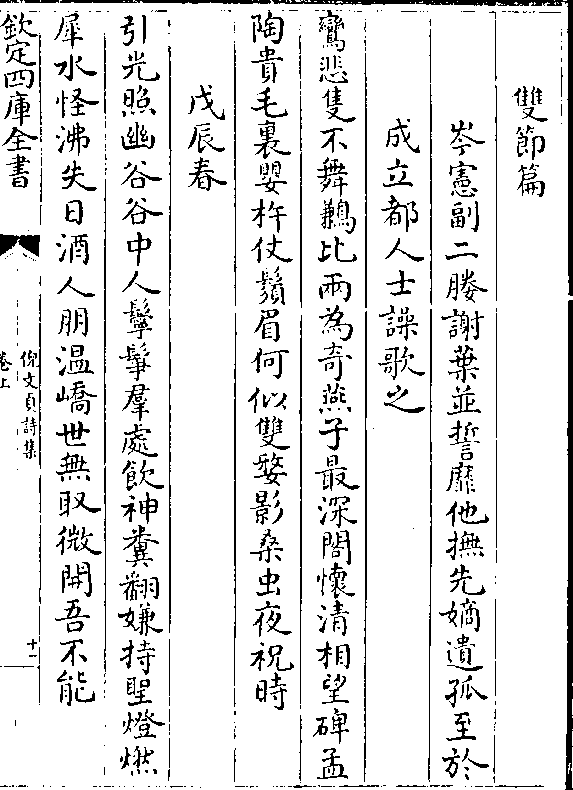 雙節篇
岑憲副二媵謝葉並誓靡他撫先嫡遺孤至於
成立都人士譟歌之
鸞悲隻不舞鶼比兩為奇燕子最深閤懷清相望碑孟
陶貴毛裏嬰杵仗鬚眉何似雙嫠影桑虫夜祝時
戊辰春
引光照幽谷谷中人鬡髶羣處飲神糞翻嫌持聖燈燃
犀水怪沸失日酒人朋温嶠世無取微開吾不能
欽定四庫全書
倪文貞詩集
卷上
十一